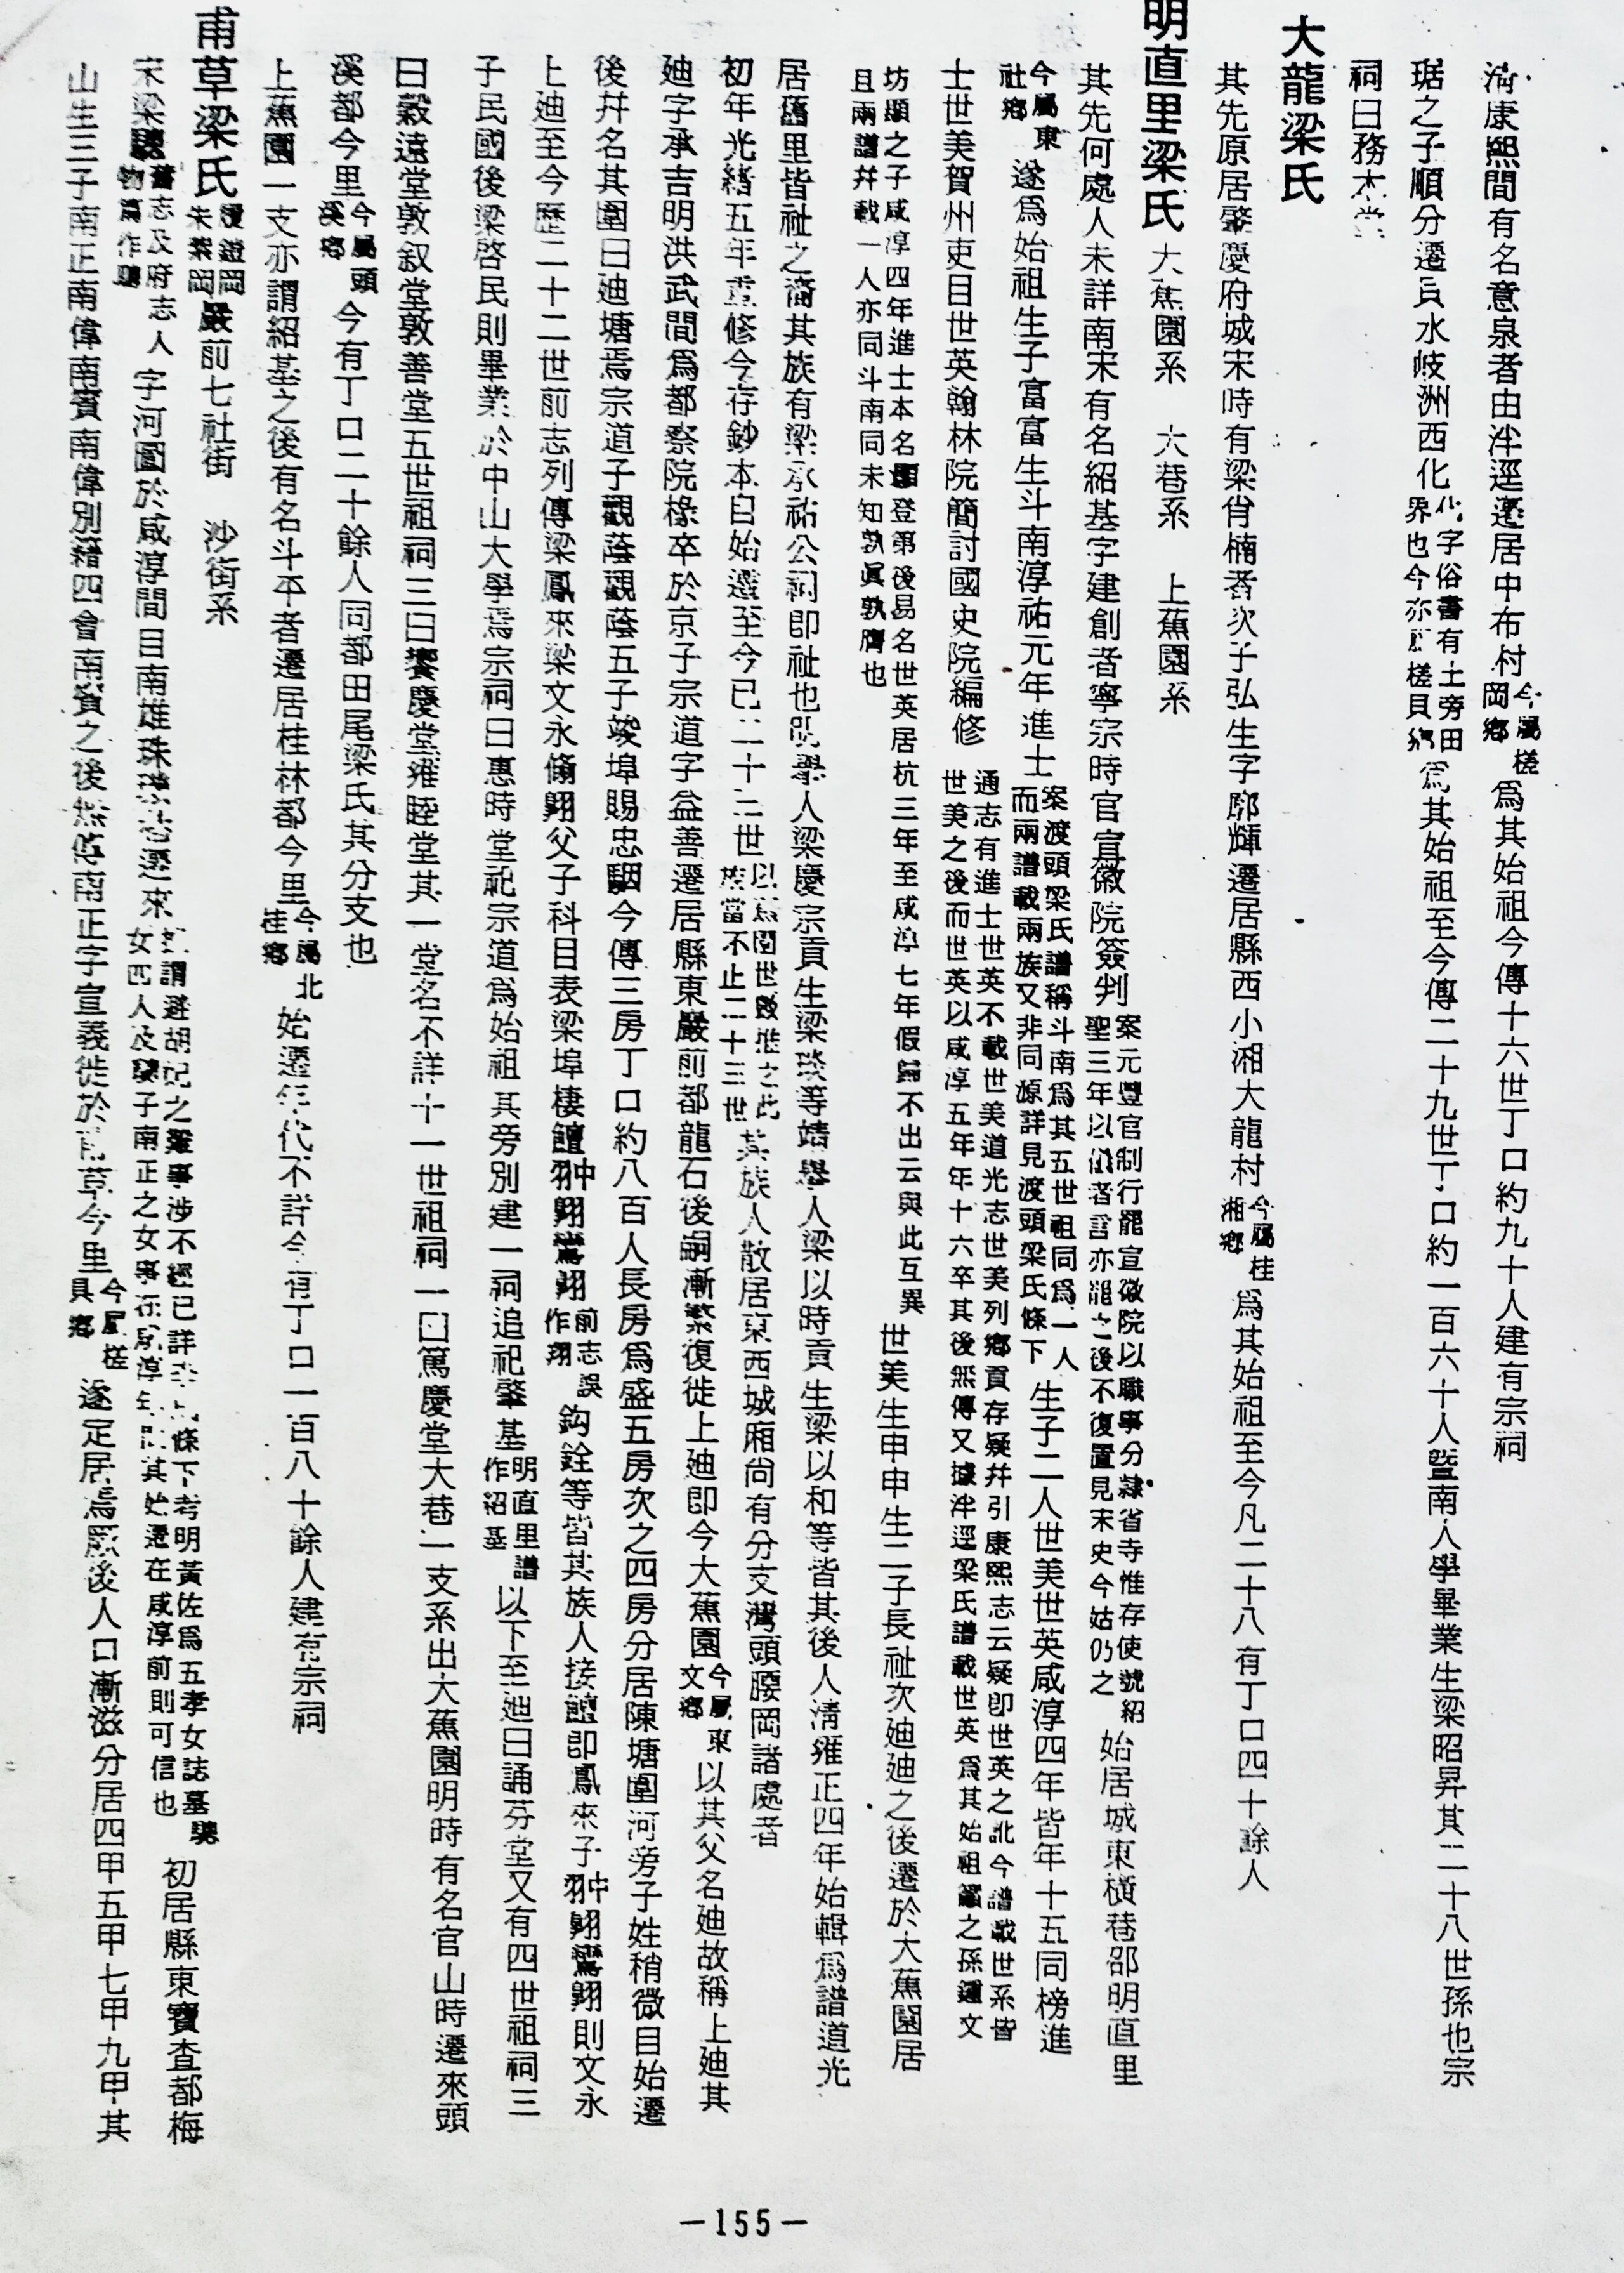 清康熙間有名意泉者由泮逕遷居中布村今屬槎岡鄉為其始祖今傳十六世丁口約九十人建有宗祠
琚之子順分遷員水岐洲西化化字俗書有土旁田界也今亦屬槎貝鄉為其始祖至今傳二十九世丁口約一百六十人暨南大學畢業生梁昭昇其二十八世孫也宗
祠曰務本堂
大龍梁氏
其先原居肇慶府城宋時有梁肖楠者次子弘生字廓輝遷居縣西小湘大龍村今屬桂湘鄉為其始祖至今凡二十八有丁口四十餘人
明直里梁氏 大蕉園系 大巷系 上蕉園系
其先何處人未詳南宋有名紹基字建創者寧宗時官宣徽院簽判案元豐官制行罷宣徽院以職事分隸省寺惟存使號紹聖三年以儀者言亦罷之後不復置見宋史今姑仍之始居城東橫巷邵明直里
今屬東社鄉遂為始祖生子富富生斗南淳祐元年進士案渡頭梁氏譜稱斗南為其五世祖同為一人而兩譜載兩族又非同源詳見渡頭梁氏條下生子二人世美世英咸淳四年皆年十五同榜進
士世美賀州吏目世英翰林院簡討國史院編修通志有進士世英不載世美道光志世美列鄉貢存疑幷引康熙志云疑卽世英之訛今譜載世系皆世美之後而世英以咸淳五年年十六卒其後無傳又據泮逕梁氏譜載世英為其始祖之孫邇文
坊顯之子咸淳四年進士本名顯登第後易名世英居杭三年至咸淳七年假歸不出云與此互異且兩譜幷載一人亦同斗南同未知孰真孰贗也世美生申申生二子長祉次廸廸之後遷於大蕉園居
居舊里皆祉之裔其族有梁承祐公祠即祉也明舉人梁慶宗貢生梁琰等靖舉人梁以時貢生梁以和等皆其後人清雍正四年始輯為譜道光
初年光緒五年重修今存鈔本自始遷至今已二十三世以蕉園世數推之此族當不止二十三世其族人散居東西城廂尚有分支灣頭腰岡諸處者
廸字承吉明洪武間為都察院椽卒於京子宗道字益善遷居縣東嚴前都龍石後嗣漸繁復徙上廸即今大蕉園今屬東文鄉以其父名廸故稱上廸其
後幷名其圍曰廸塘焉宗道子觀蔭觀蔭五子竣埠賜忠駰今傳三房丁口約八百人長房為盛五房次之四房分居陳塘圍河旁子姓稍微自始遷
上廸至今歷二十二世前志列傳梁鳳來梁文永翛翺父子科目表梁埠棲鱣翀翺鸞翙前志誤作翔鈎銓等皆其族人接鱣即鳳來子翀翺鸞翺則文永
子民國後梁啓民則畢業於中山大學焉宗祠曰惠時堂祀宗道為始祖其旁別建一祠追祀肇基明直里譜作紹基以下至廸曰誦芬堂又有四世祖祠三
曰穀遠堂敦叙堂敦善堂五世祖祠三曰饗慶堂雍睦堂其一堂名不詳十一世祖祠一曰篤慶堂大巷一支系出大蕉園明時有名官山時遷來頭
溪都今里今屬頭溪鄉今有丁口二十餘人同都田尾梁氏其分支也
上蕉園一支亦謂紹基之後有名斗平者遷居桂林都今里今屬北桂鄉始遷年代不詳今有丁口一百八十餘人建有宗祠
甫草梁氏 嚴前七社街 沙街系
宋梁驄舊志及府志人物篇作驄字河圖於咸淳間自南雄珠璣巷遷來女四人及驄子南正之女事在咸淳年間其始遷在咸淳前則可信也初居縣東寶查都梅
山生三子南正南偉南賓南偉別籍四會南賓之後無傳南正字宣義徙於甫草今里今屬槎貝鄉遂定居焉厥後人口漸滋分居四甲五甲七甲九甲其
—155—